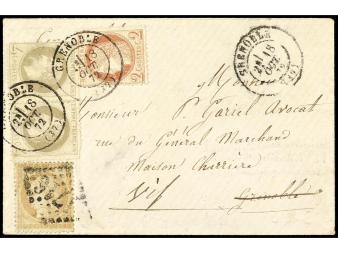 GRENOBLE
2E/ 18
OCT.
72
(37)
GRENOBLE
18
OCT.
72
(37)
GRENOBLE
18
OCT.
72
Monsieur
Monsieur P. Gariel Avocat
rue du Général Marchand
Maison Charrière
Vif
Grenoble